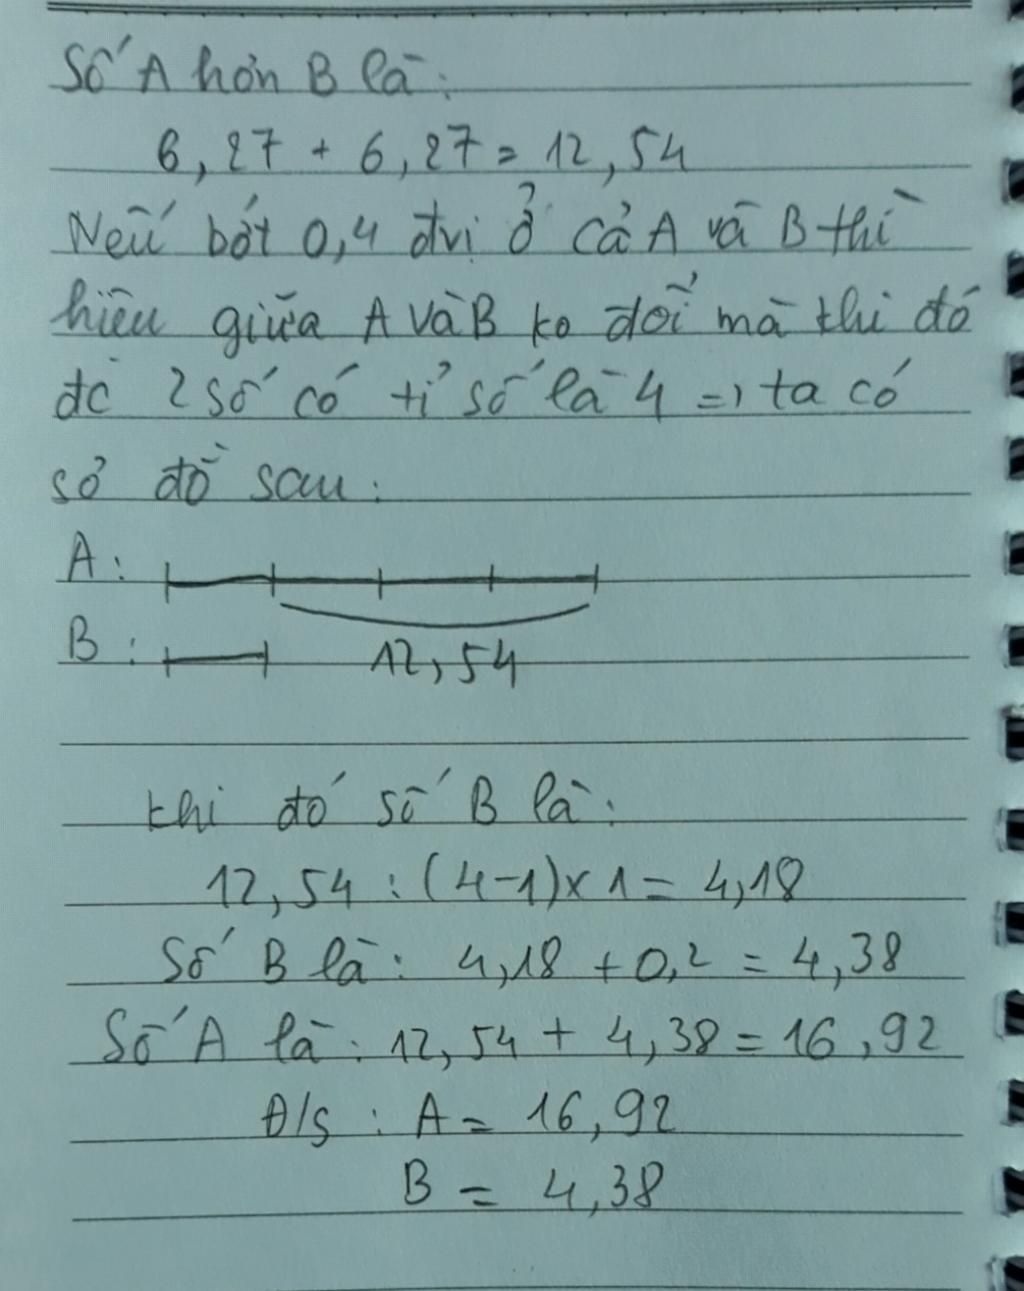 Số A hơn B là:
6,27 + 6,27 = 12,54
Nếu bớt 0,4 đvị ở cả A và B thì
hiệu giữa A và B ko đổi mà khi đó
đc 2 số có tỉ số là 4 => ta có
sơ đồ sau:
A:
B: 12,54
khi đó số B là:
12,54 : (4-1) x 1 = 4,18
Số B là: 4,18 + 0,2 = 4,38
Số A là: 12,54 + 4,38 = 16,92
Đ/s: A = 16,92
B = 4,38